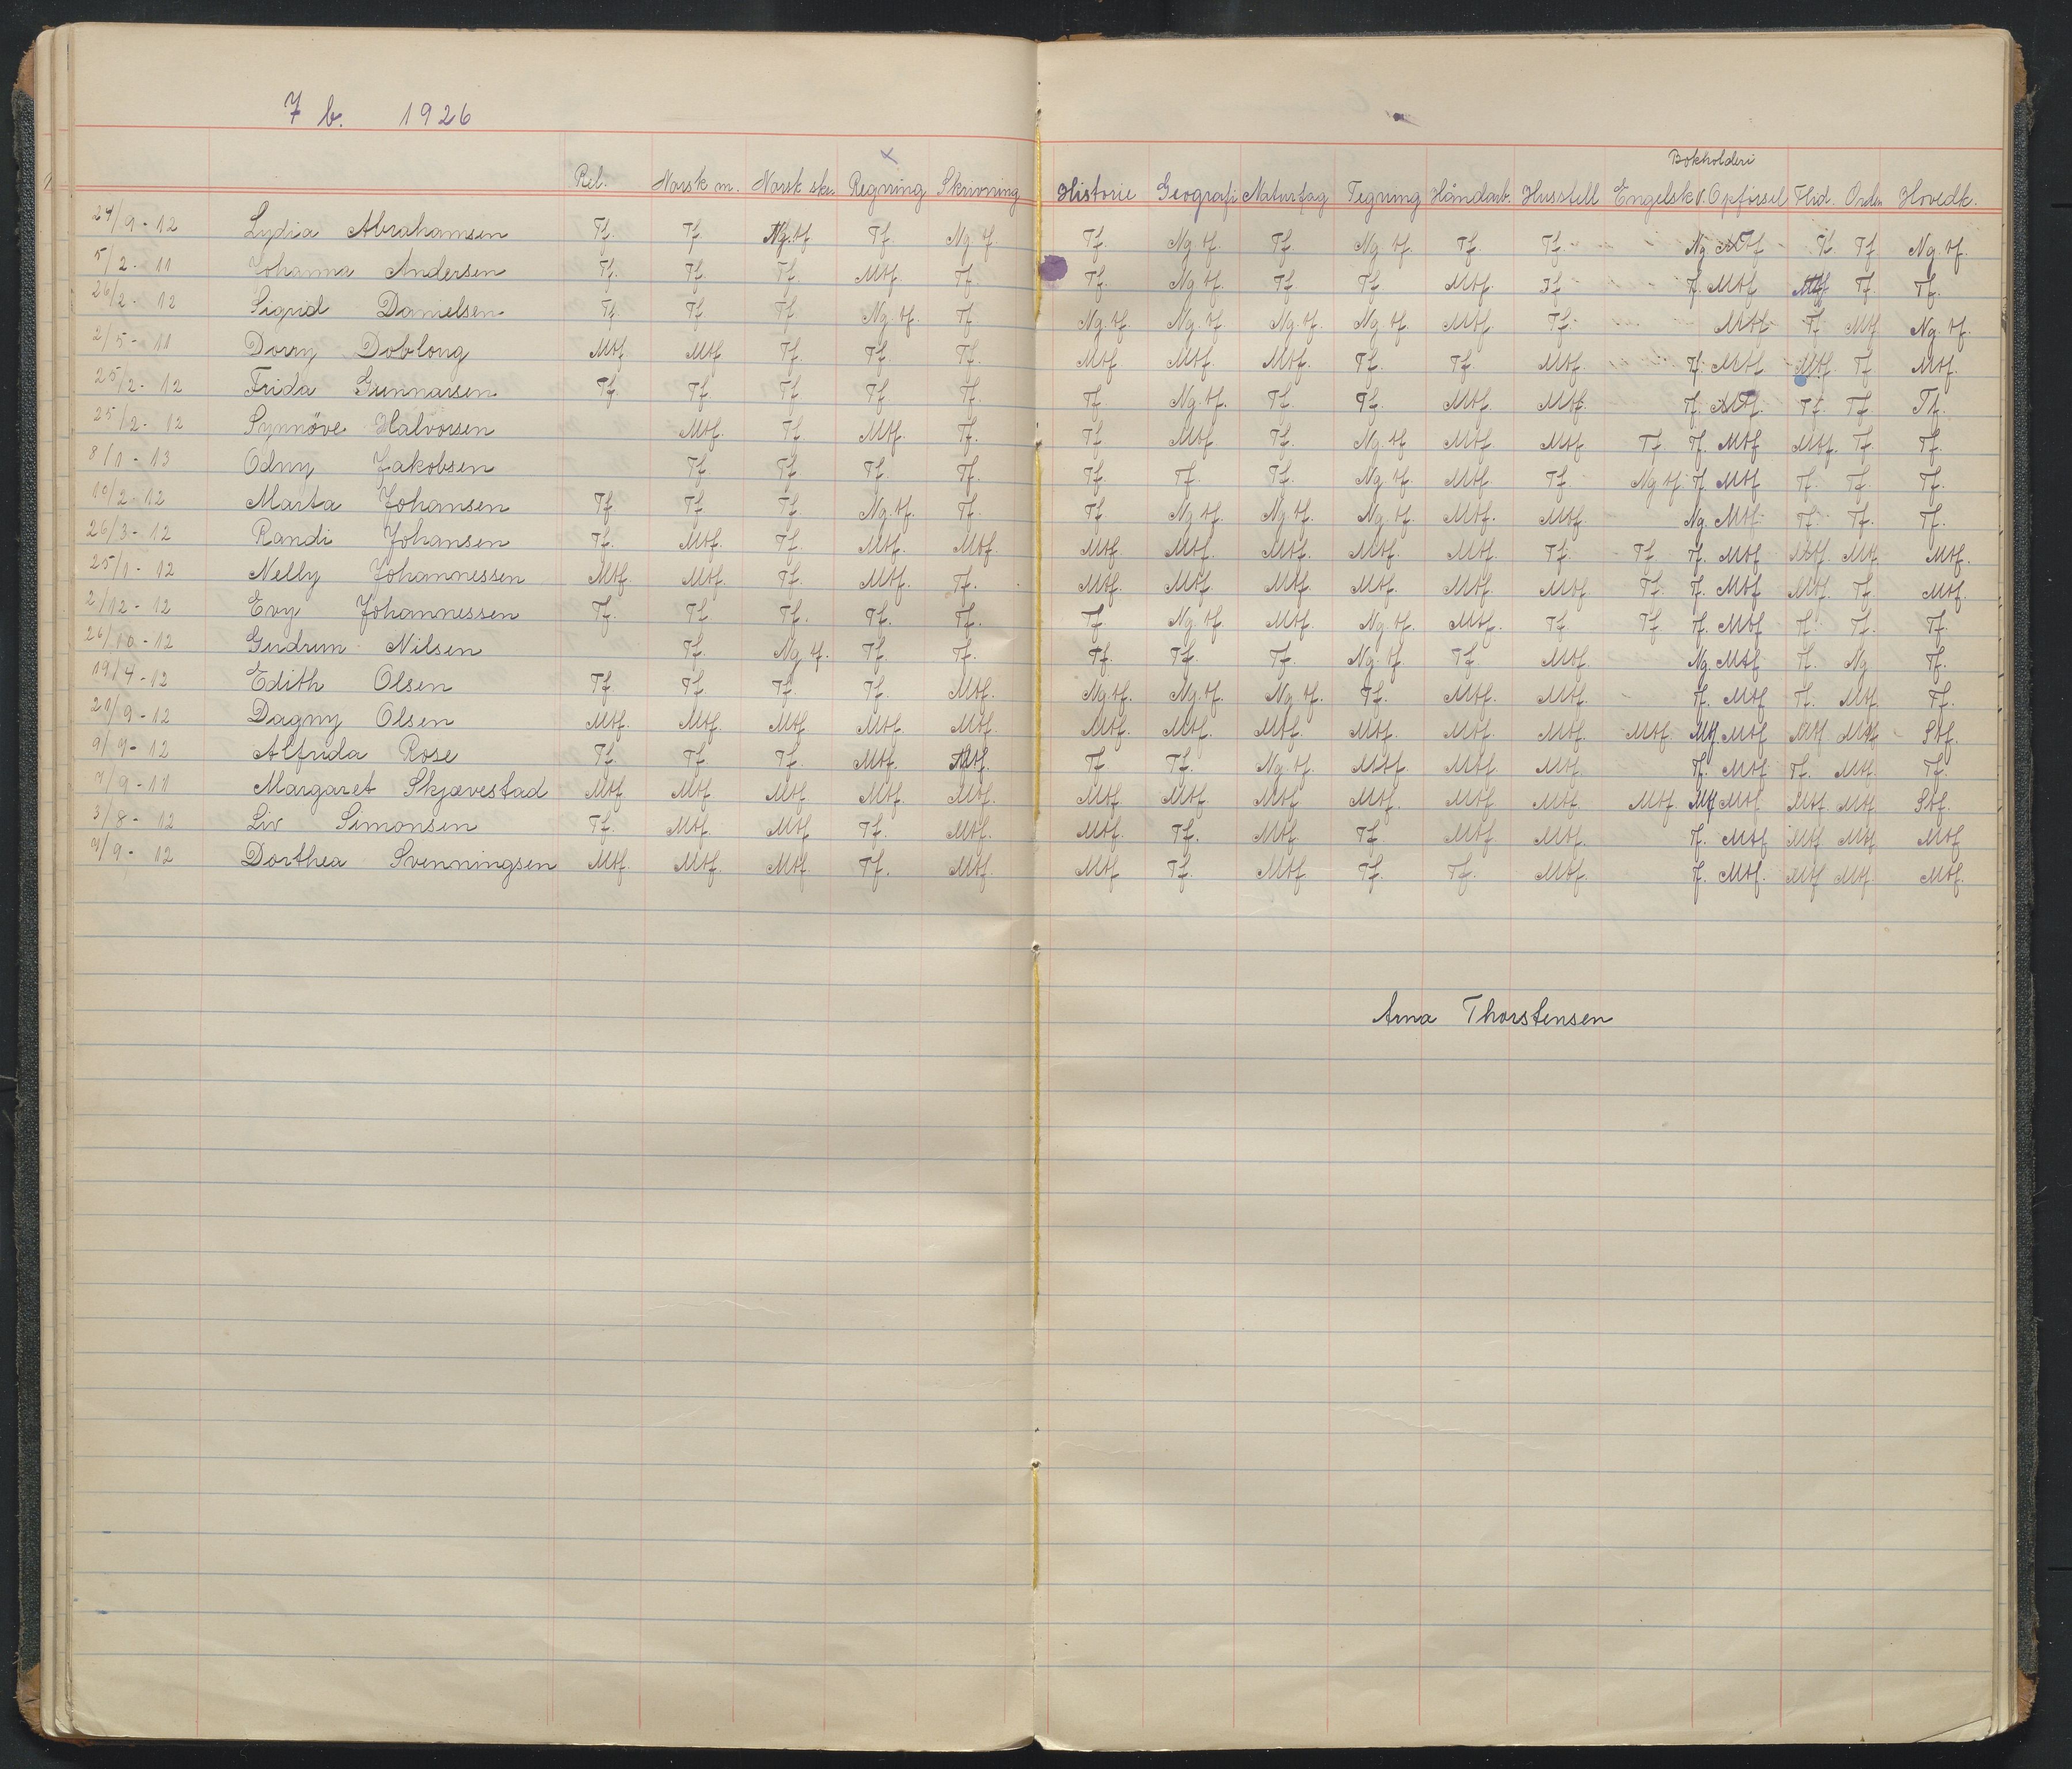 7 b. 1926
Bokholderi
Rel. Norsk m. Norsk skr. Regning Skrivning Historie Geografi Naturfag Tegning Håndarb. Husstell Engelsk Opförsel Flid. Orden Hovedk.
24/9-12 Lydia Abrahamsen Tf. Tf. Ng.tf. Tf. Ng tf. Tf. Ng. tf. Tf. Ng. tf. Tf. Tf. Ng Mtf Tf. Tf. Ng. tf.
5/2-11 Johanna Andersen Tf. Tf. Tf. Mtf. Tf. Tf. Ng. tf. Tf Tf. Mtf. Tf Tf. Mtf Mtf Tf. Tf.
26/2-12 Sigrid Danielsen Tf Tf Tf Ng. tf. Tf Ng. tf Ng. tf. Ng. tf. Ng. tf Mtf Tf Mtf Tf Mtf Ng. tf.
2/5-11 Dorry Doblong Mtf Mtf Tf. Tf. Tf. Mtf. Mtf. Mtf. Tf. Tf. Mtf. Tf. Mtf Mtf. Tf Mtf.
25/2-12 Frida Gunnarsen Tf. Tf Tf Tf Tf. Tf. Ng. tf. Tf. Tf. Mtf Mtf. Tf. Mtf. Tf. Tf. Tf.
25/2-12 Synnöve Halvorsen Mtf. Tf. Mtf. Tf. Tf. Mtf Tf. Ng. tf Mtf Mtf Tf. Tf. Mtf Mtf. Tf. Tf.
8/1-13 Odny Jakobsen Tf Tf. Tf. Tf. Tf. Tf. Tf. Ng. tf. Mtf. Tf. Ng tf. Tf. Mtf Tf. Tf. Tf.
10/2-12 Marta Johansen Tf Tf Tf. Ng. tf. Tf. Tf. Ng tf. Ng. tf. Ng. tf. Mtf. Mtf Ng. Mtf Tf. Tf. Tf.
26/3-12 Randi Johansen Tf. Mtf. Tf. Mtf. Mtf. Mtf. Mtf. Mtf. Mtf. Mtf. Tf. Tf Tf. Mtf Mtf. Mtf Mtf.
25/1-12 Nelly Johannessen Mtf. Mtf. Tf. Mtf. Tf. Mtf. Mtf. Mtf. Mtf. Mtf. Mtf Tf. Tf. Mtf Mtf. Tf. Mtf.
2/12-12 Evy Johannessen Tf. Tf Tf. Tf. Tf. Tf Ng. tf. Mtf. Ng. tf. Mtf. Tf Tf Tf. Mtf Tf. Tf. Tf.
26/10-12 Gudrun Nilsen Tf. Ng tf. Tf. Tf. Tf. Tf. Tf. Ng. tf Tf. Mtf. Ng. Mtf Tf. Ng Tf.
19/4-12 Edith Olsen Tf. Tf Tf. Tf. Mtf. Ng. tf. Ng. tf. Ng. tf. Tf. Mtf. Mtf. Tf. Mtf Tf. Mtf. Tf.
Dagny Olsen Mtf. Mtf. Mtf. Mtf. Mtf. Mtf. Mtf. Mtf. Mtf. Mtf. Mtf. Mtf Mtf. Mtf Mtf Mtf Stf.
9/9-12 Alfrida Rose Tf. Tf. Tf. Mtf. Mtf. Tf Tf. Ng. tf. Mtf. Mtf. Mtf. Tf. Mtf Tf. Mtf. Tf.
Margaret Skjævestad Mtf. Mtf. Mtf. Mtf. Mtf. Mtf. Mtf. Mtf. Mtf. Mtf. Mtf. Mtf. Mtf Mtf Mtf. Mtf Stf.
3/8-12 Liv Simonsen Tf. Mtf. Mtf. Tf. Mtf. Mtf. Tf. Mtf. Tf. Mtf Mtf. Tf. Mtf Mtf Mtf Mtf
Dorthea Svenningsen Mtf. Mtf. Mtf. Tf. Mtf. Mtf Tf. Mtf Tf. Tf. Mtf. Tf. Mtf. Mtf Mtf. Mtf.
Anna Thorstensen